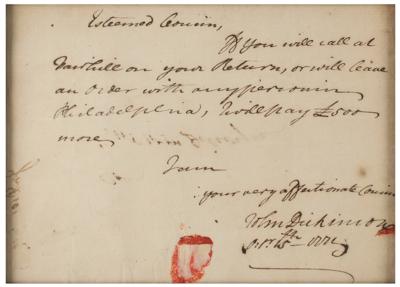 Esteemed Cousin,
If you will call at
Fairhill on your Return, or will leave
an Order with any person in
Philadelphia, I will pay £500
more.
I am
your very affectionate Cousin
John Dickinson
15th